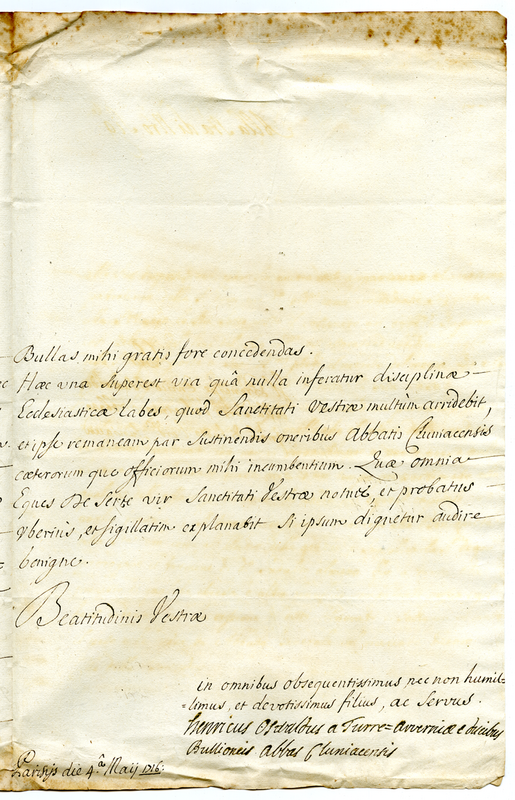 Bullas mihi gratis fore concedendas.
Hæc vna superest via quâ nulla inferatur disciplinæ
Ecclesiasticæ labes, quod Sanctitati Vestræ multùm arridebit,
et ipse remaneam par sustinendis oneribus Abbatis Cluniacensis
cæterorum que officiorum mihi incumbentium. Quæ omnia
Eques De Serte vir Sanctitati Vestræ notus, et probatus
vberius, et sigillatim explanabit si ipsum dignetur audire
benigne.
Beatitudinis Vestræ
in omnibus obsequentissimus nec non humil=
=limus, et devotissimus filius, ac servus.
henricus Osvaldus a Turre=arverniæ e ducibus
Bullioneis abbas Cluniacensis
Parisijs die 4.ª Maij 1716.